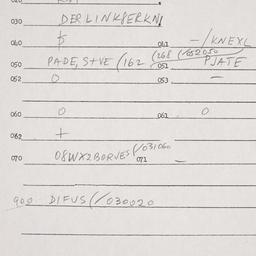 030 DERLINK8ERKN
040 $ 041 -/KNEXL
050 PADE, S+VE (162 (268 (/052050 051 PJATE
052 0 053 -
060 0 061 0
062 +
070 08WX2BORVES (/031060 071 -
900 DIFUS (/030020